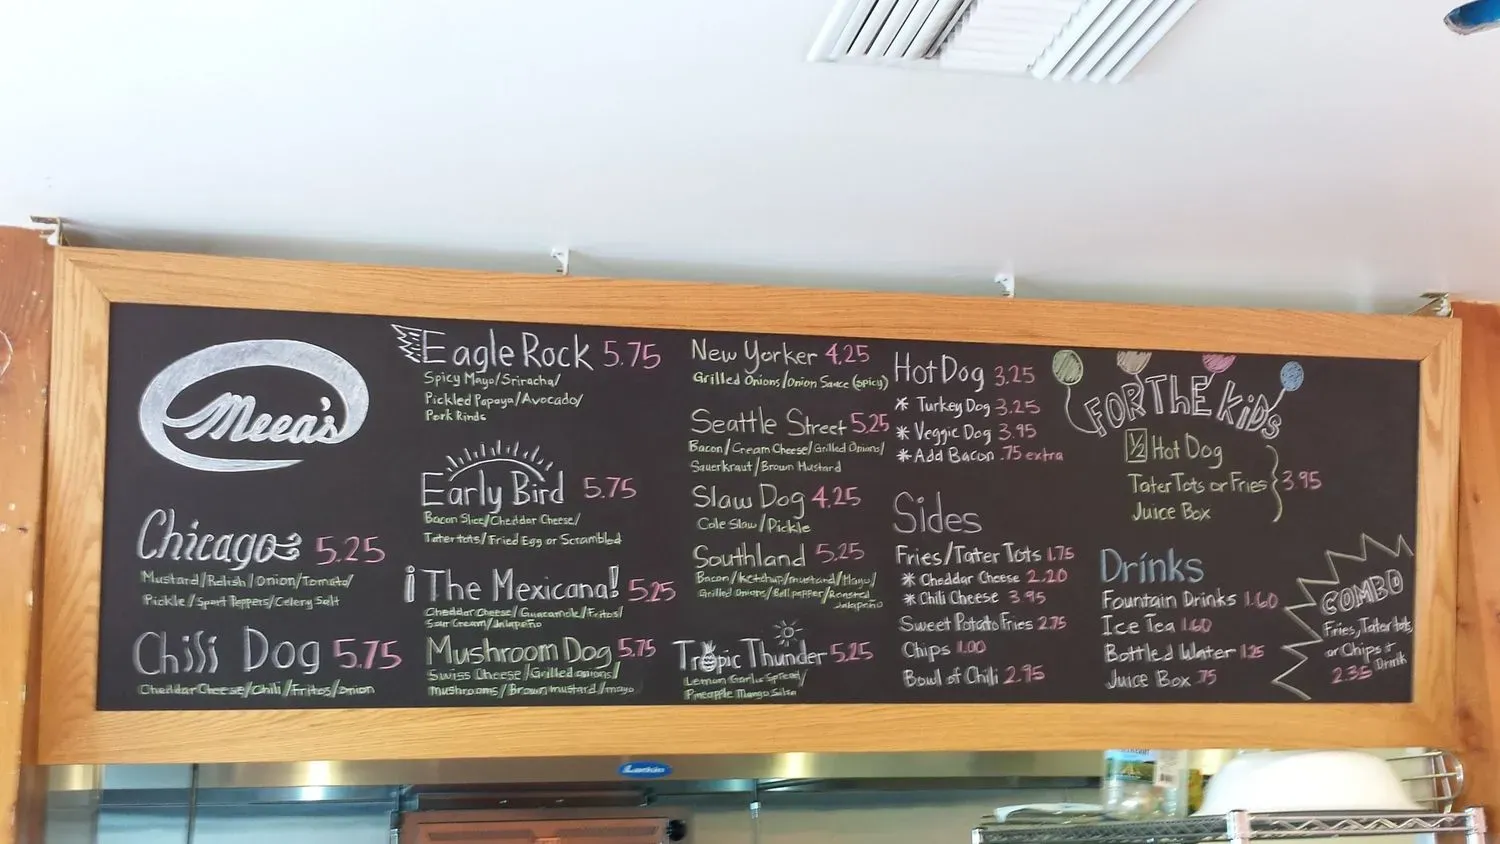 Meea's
Chicago 5.25
Mustard/Relish/Onion/Tomato/
Pickle/Sport Peppers/Celery Salt
Chili Dog 5.75
Cheddar Cheese/Chili/Fritos/Onion
Eagle Rock 5.75
Spicy Mayo/Sriracha/
Pickled Papaya/Avocado/
Pork Rinds
Early Bird 5.75
Bacon Slice/Cheddar Cheese/
Tater tots/Fried Egg or Scrambled
¡The Mexicana! 5.25
Cheddar Cheese/Guacamole/Fritos/
Sour Cream/Jalapeño
Mushroom Dog 5.75
Swiss Cheese/Grilled onions/
Mushrooms/Brown mustard/mayo
New Yorker 4.25
Grilled Onions/Onion Sauce (spicy)
Seattle Street 5.25
Bacon/Cream Cheese/Grilled Onions/
Sauerkraut/Brown Mustard
Slaw Dog 4.25
Cole Slaw/Pickle
Southland 5.25
Bacon/Ketchup/mustard/Mayo/
Grilled Onions/Bell pepper/Roasted
Jalapeño
Tropic Thunder 5.25
Lemon Garlic Spread/
Pineapple Mango Salsa
Hot Dog 3.25
* Turkey Dog 3.25
* Veggie Dog 3.95
* Add Bacon .75 extra
Sides
Fries/Tater Tots 1.75
* Cheddar Cheese 2.20
* Chili Cheese 3.95
Sweet Potato Fries 2.75
Chips 1.00
Bowl of Chili 2.95
FOR THE KiDS
½ Hot Dog
Tater Tots or Fries 3.95
Juice Box
Drinks
Fountain Drinks 1.60
Ice Tea 1.60
Bottled Water 1.25
Juice Box .75
COMBO
Fries, Tater tots,
or Chips &
Drink
2.35
Larkin